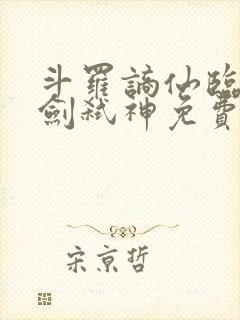 斗羅謫仙臨
劍弒神免費
宋京哲